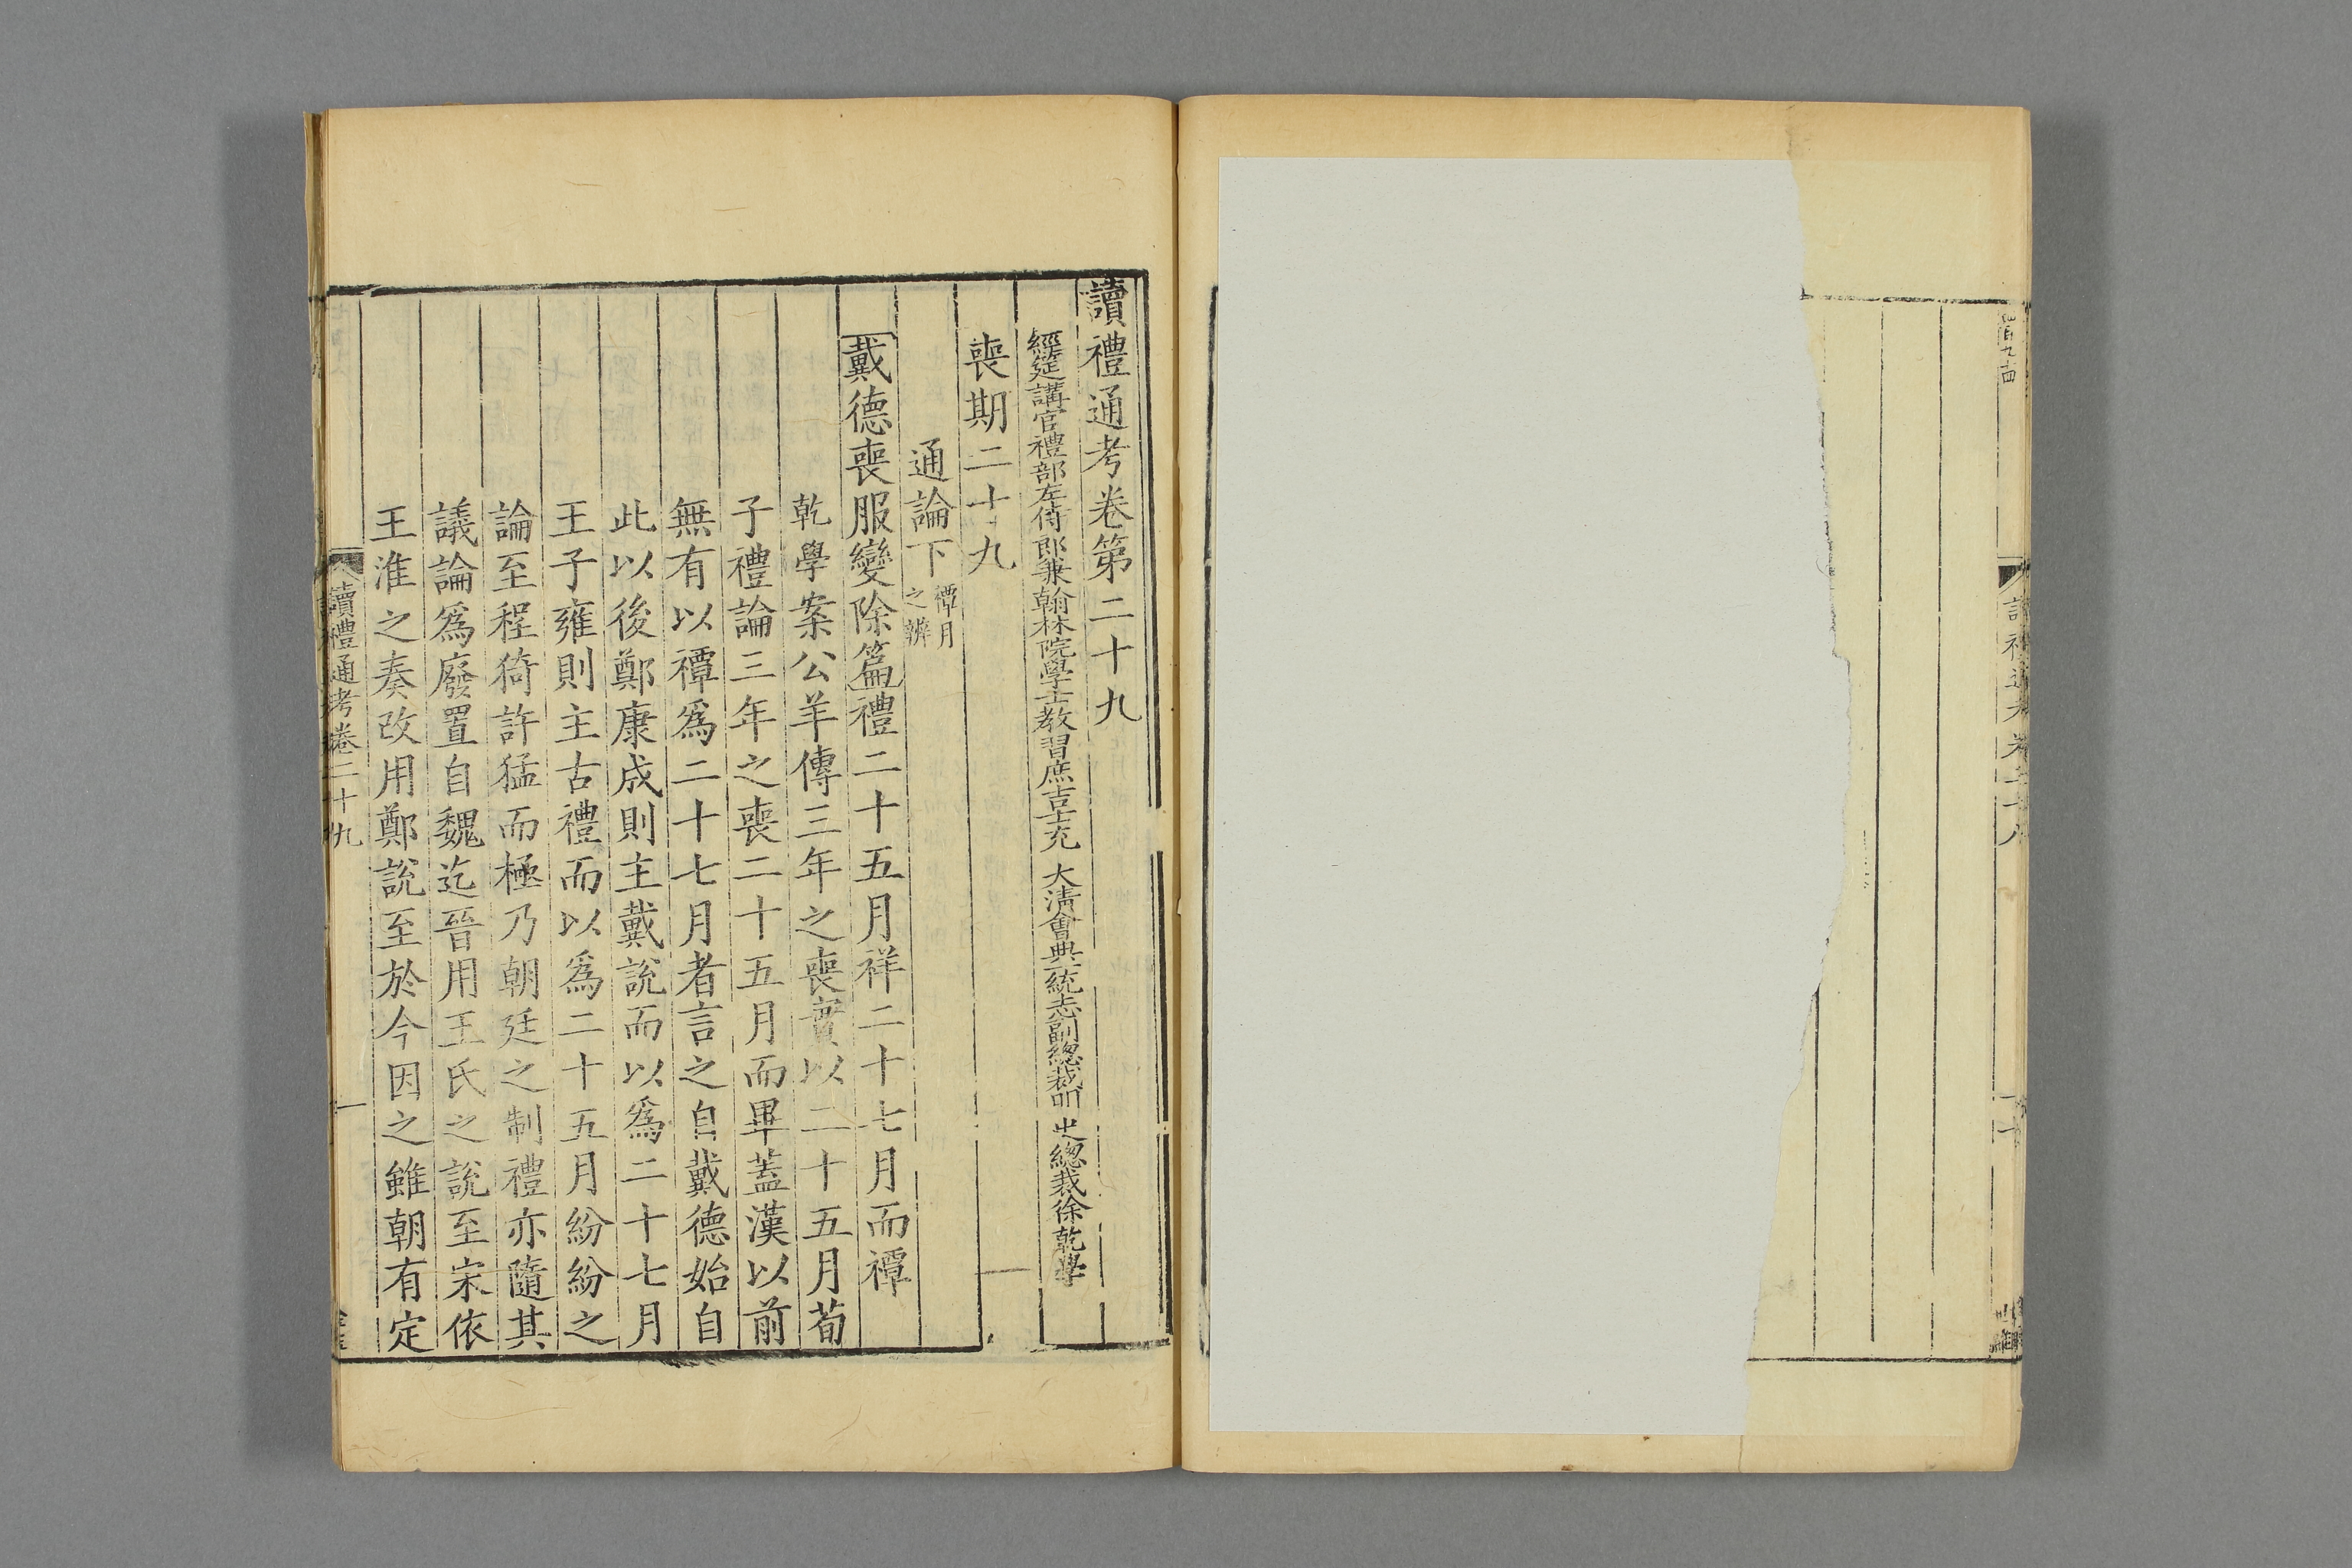 讀禮通考卷第二十九
經筵講官禮部左侍郎兼翰林院學士教習庶吉士充 大清會典一統志副總裁明 史總裁徐乾學
喪期二十九
通論下 禫月之辨
戴德喪服變除篇禮二十五月祥二十七月而禫
乾學案公羊傳三年之喪實以二十五月荀
子禮論三年之喪二十五月而畢蓋漢以前
無有以禫爲二十七月者言之自戴德始自
此以後鄭康成則主戴說而以爲二十七月
王子雍則主古禮而以爲二十五月紛紛之
論至程猗許猛而極乃朝廷之制禮亦隨其
議論爲廢置自魏迄晉用王氏之說至宋依
王淮之奏改用鄭說至於今因之雖朝有定
讀禮通考卷二十九
一